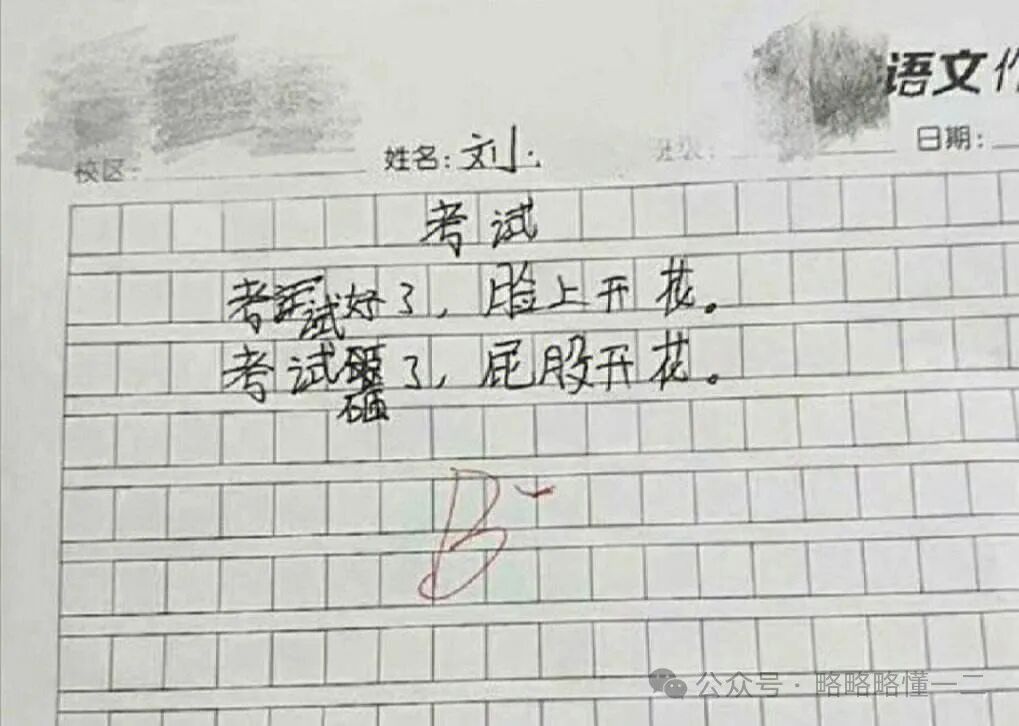 语文作
校区: 姓名: 刘小 日期:
考试
考试好了，脸上开花。
考试砸了，屁股开花。
B-
公众号·略略略懂一二